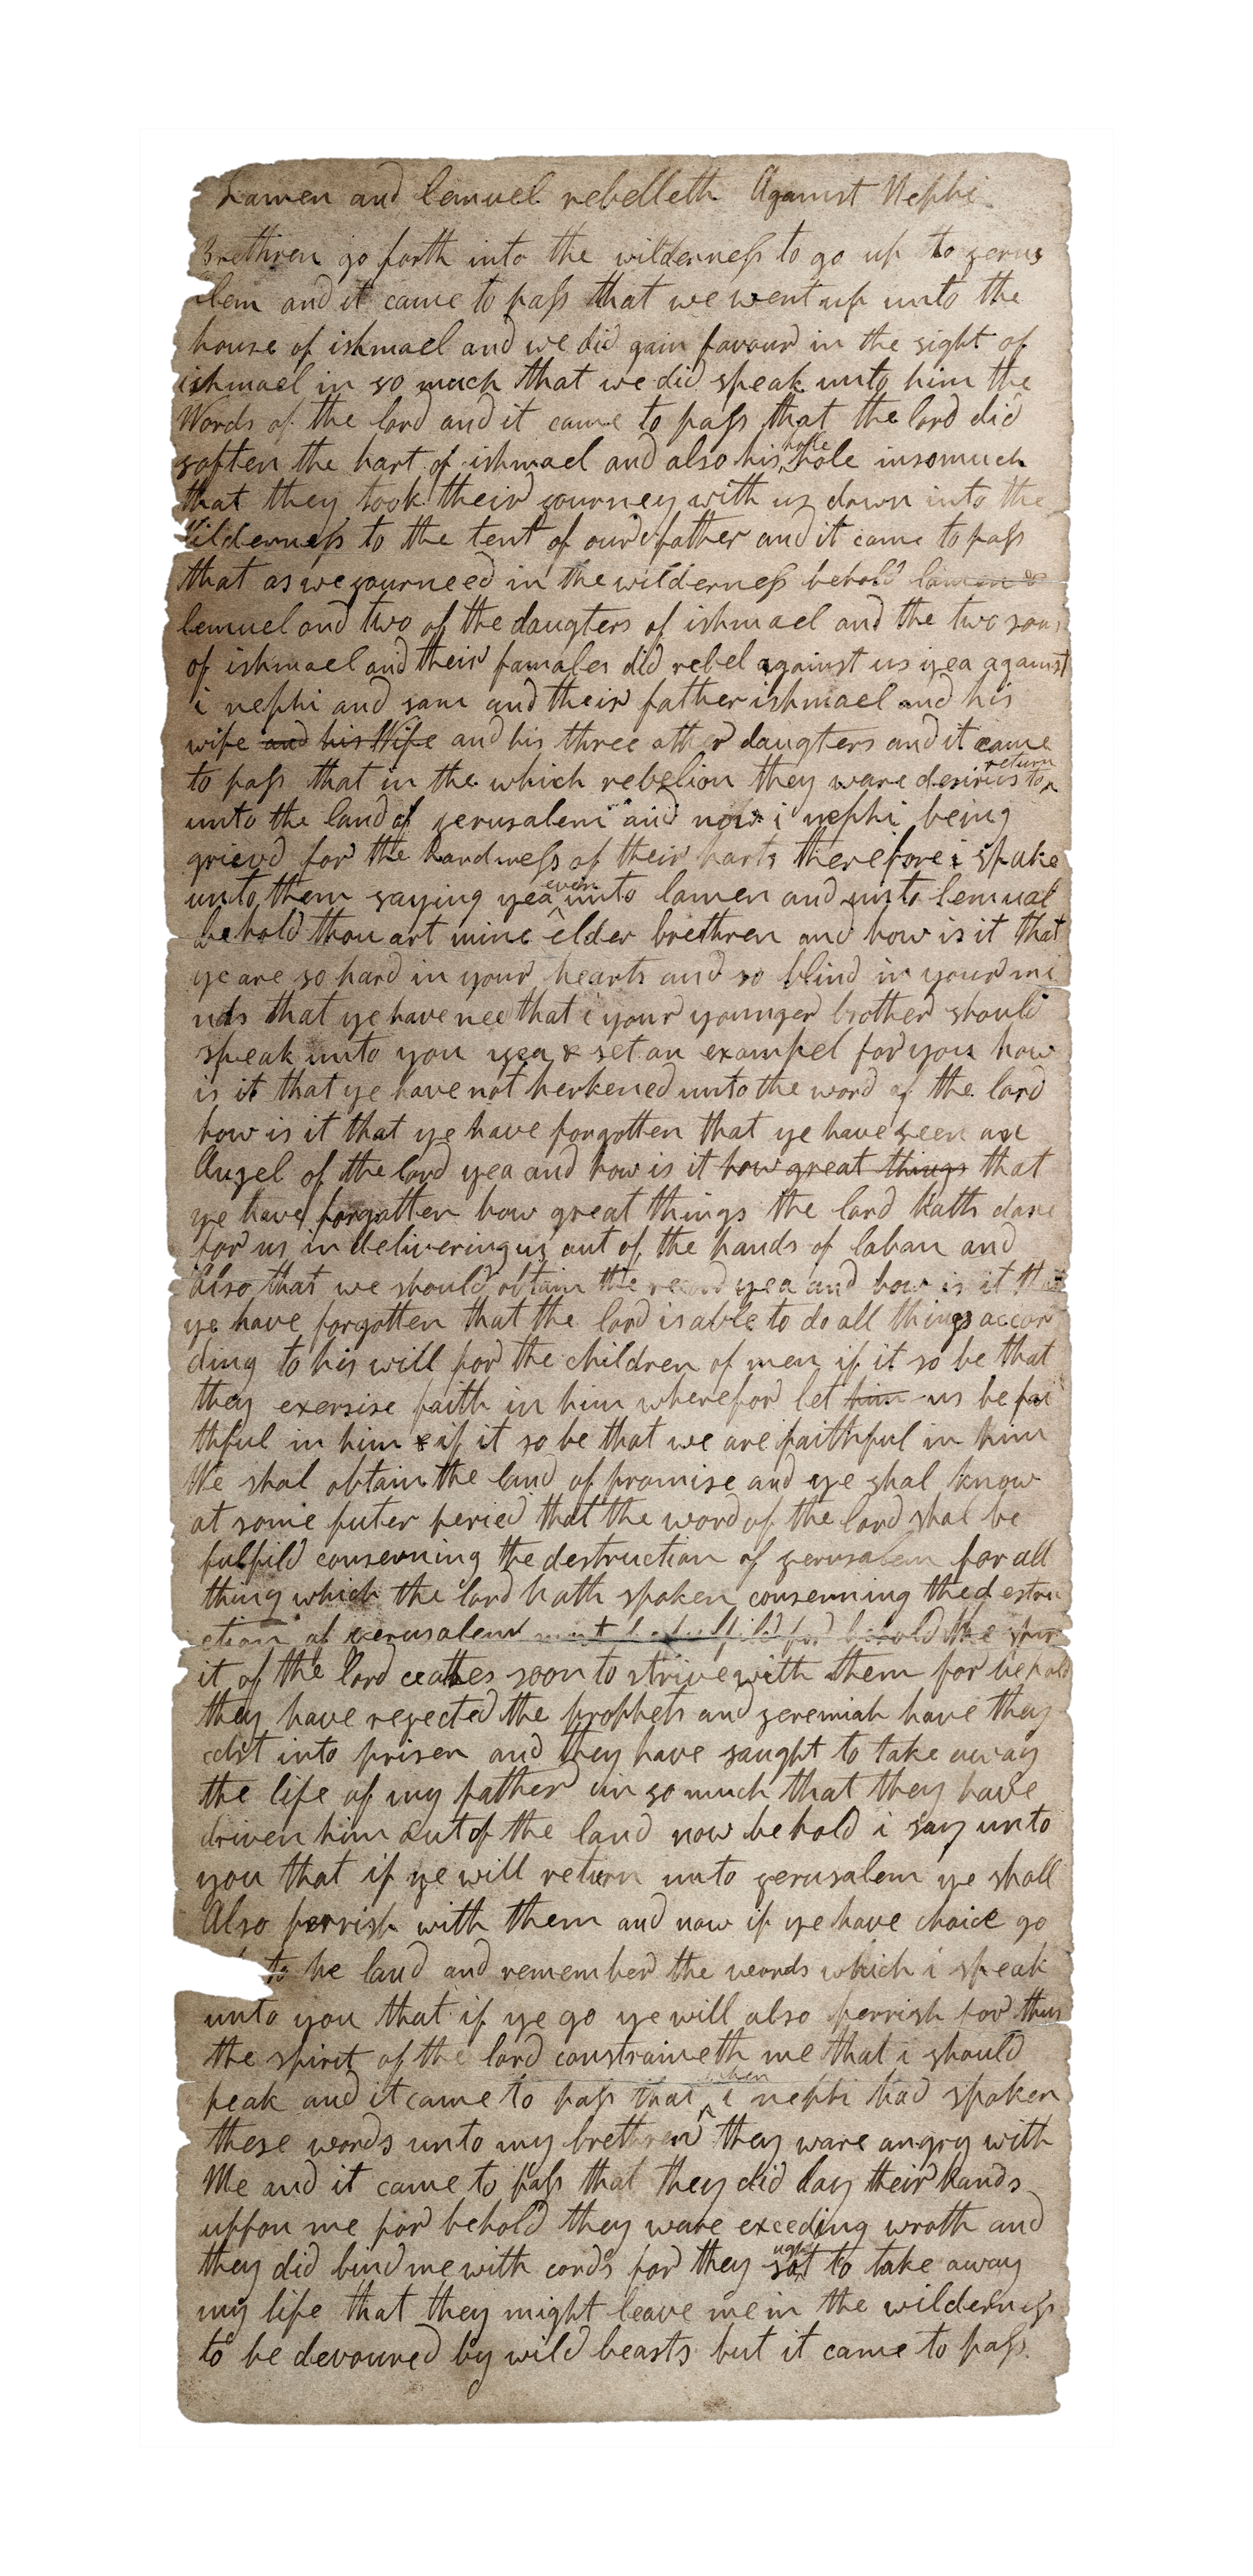 Lamen and Lemuel rebelleth Against Nephi
Brethren go forth into the wilderness to go up to jerus
alem and it came to pass that we went up unto the
house of ishmael and we did gain favour in the sight of
ishmael in so much that we did speak unto him the
Words of the lord and it came to pass that the lord did
soften the hart of ishmael and also his hole insomuch
that they took their journey with us down into the
Wilderness to the tent of our father and it came to pass
that as we journeed in the wilderness behold lamen &
lemuel and two of the daugters of ishmael and the two sons
of ishmael and their famales did rebel against us yea against
i nephi and sam and their father ishmael and his
wife and his Wife and his three other daugters and it came
to pass that in the which rebelion they ware desirius to return
unto the land of jerusalem and now i nephi being
grievd for the hardness of their harts therefore i spake
unto them saying yea even unto lamen and unto lemual
behold thou art mine elder brethren and how is it that
ye are so hard in your hearts and so blind in your mi
nds that ye have nee that i your younger brother should
speak unto you yea & set an exampel for you how
is it that ye have not herkened unto the word of the lord
how is it that ye have forgotten that ye have seen an
Angel of the lord yea and how is it how great things that
ye have forgotten how great things the lord hath done
for us in delivering us out of the hands of laban and
also that we should obtain the record yea and how is it that
ye have forgotten that the lord is able to do all things accor
ding to his will for the children of men if it so be that
they exersise faith in him wherefor let him us be fai
thful in him & if it so be that we are faithful in him
We shal obtain the land of promise and ye shal know
at some futer peried that the word of the lord shal be
fulfild conserning the destruction of jerusalem for all
thing which the lord hath spoken conserning the destru
ction of jerusalem must be fulfild for behold the spir
it of the lord ceattes soon to strive with them for behold
they have rejected the prophets and jeremiah have they
cast into prisen and they have saught to take away
the life of my father in so much that they have
driven him out of the land now behold i say unto
you that if ye will return unto jerusalem ye shall
Also perrish with them and now if ye have choice go
to he land and remember the words which i speak
unto you that if ye go ye will also perrish for thus
the spirit of the lord constraineth me that i should
peak and it came to pass that when i nephi had spoken
these words unto my brethren they ware angry with
Me and it came to pass that they did lay their hands
uppon me for behold they ware exceding wroth and
they did bind me with cords for they sought to take away
my life that they might leave me in the wilderness
to be devoured by wild beasts but it came to pass